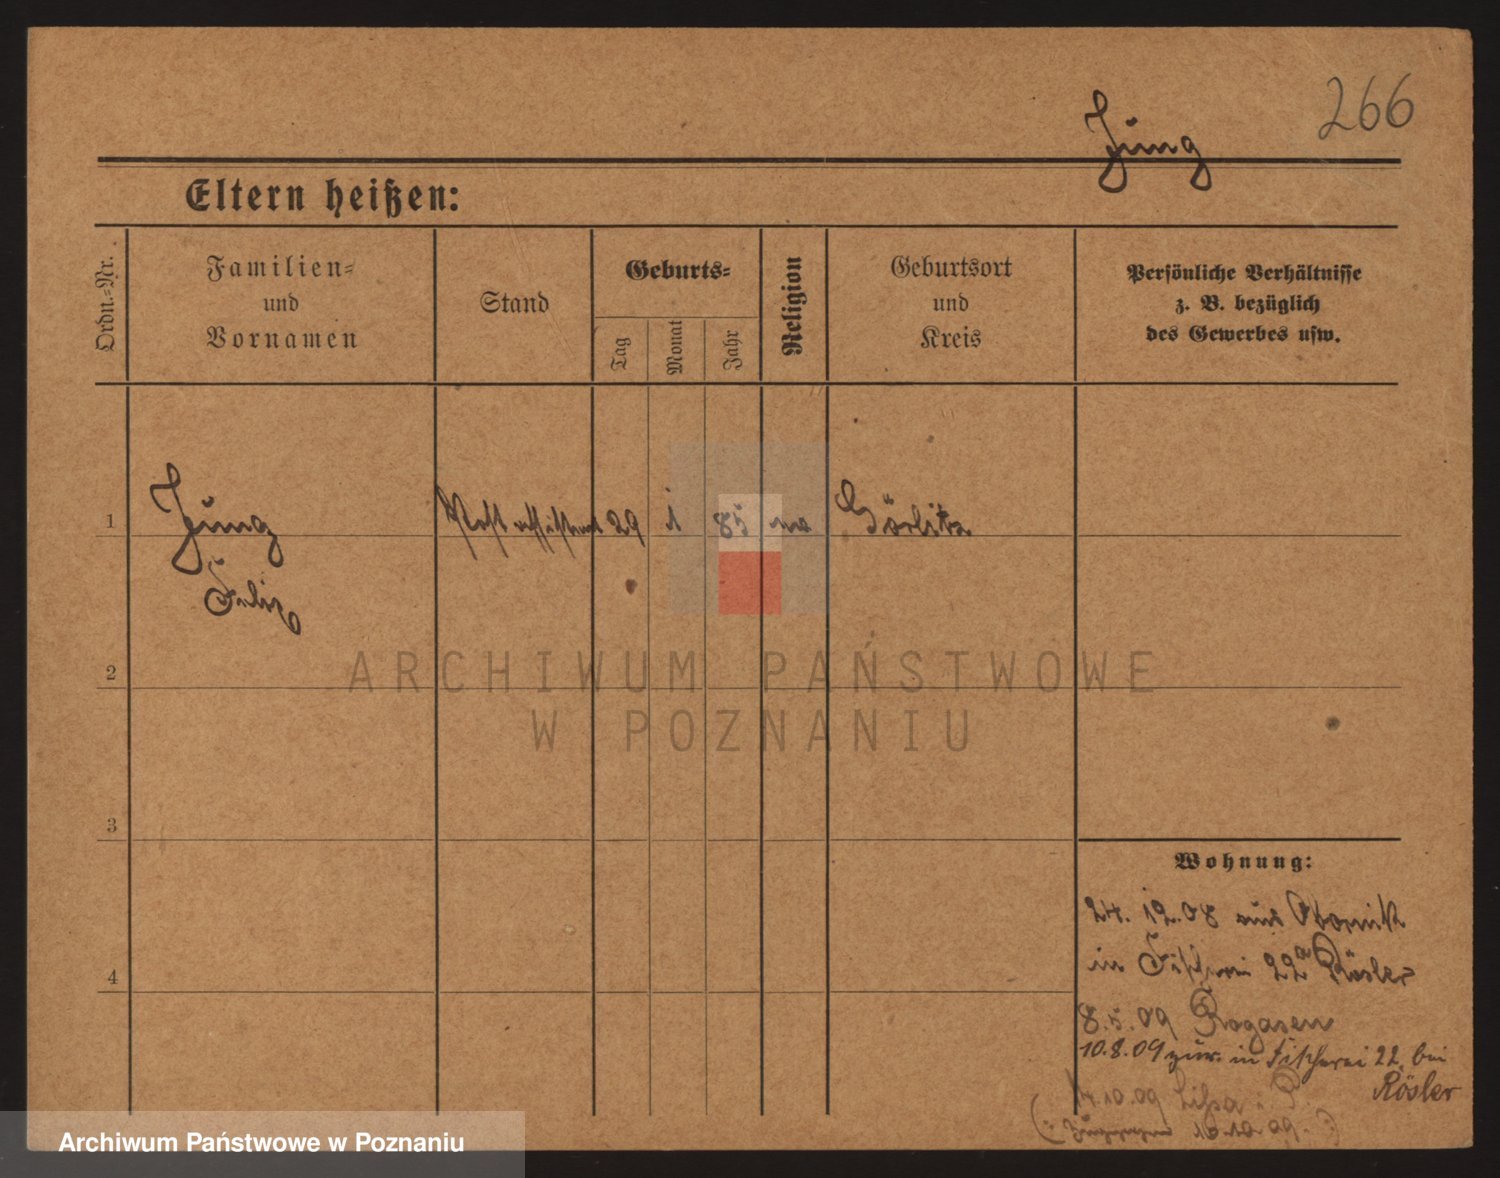 266
Jung
Eltern heißen:
Ordn.-Nr.
Familien-
und
Vornamen
Stand
Geburts-
Tag
Monat
Jahr
Religion
Geburtsort
und
Kreis
Persönliche Verhältnisse
z. B. bezüglich
des Gewerbes usw.
1
Jung
Felix
Postassistent
29
1
85
ev
Görlitz
2
ARCHIWUM PAŃSTWOWE
W POZNANIU
3
4
Wohnung:
24. 12. 08 aus Obornik
in Fischerei 22a Rösler
8. 5. 09 Rogasen
10. 8. 09 zur. in Fischerei 22, bei
Rösler
14. 10. 09 Lissa i. P.
10. 09.
Archiwum Państwowe w Poznaniu